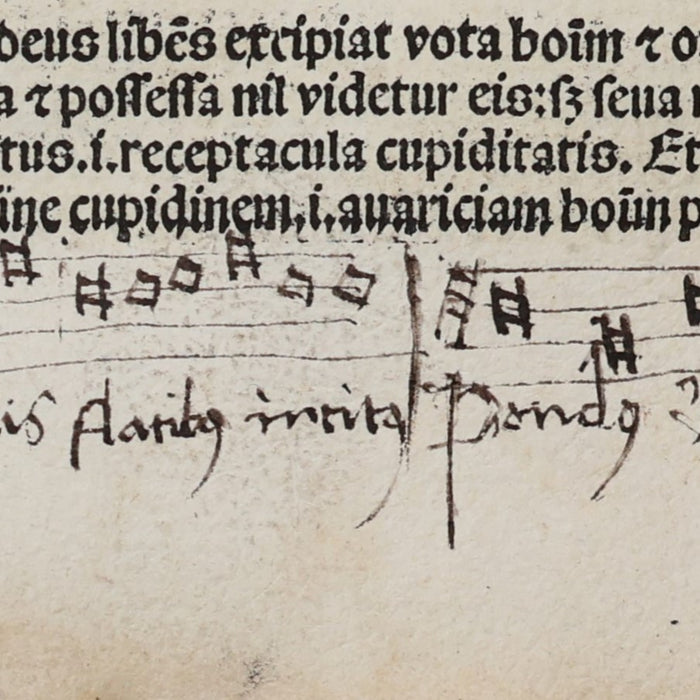 deus libēs excipiat vota boīm ⁊ o
a ⁊ possessa nil videtur eis:sꝫ seua
tus.i.receptacula cupiditatis. Et
ine cupidinem.i.auariciam boūm p
is flatibꝯ incitꝯ Pondꝯ